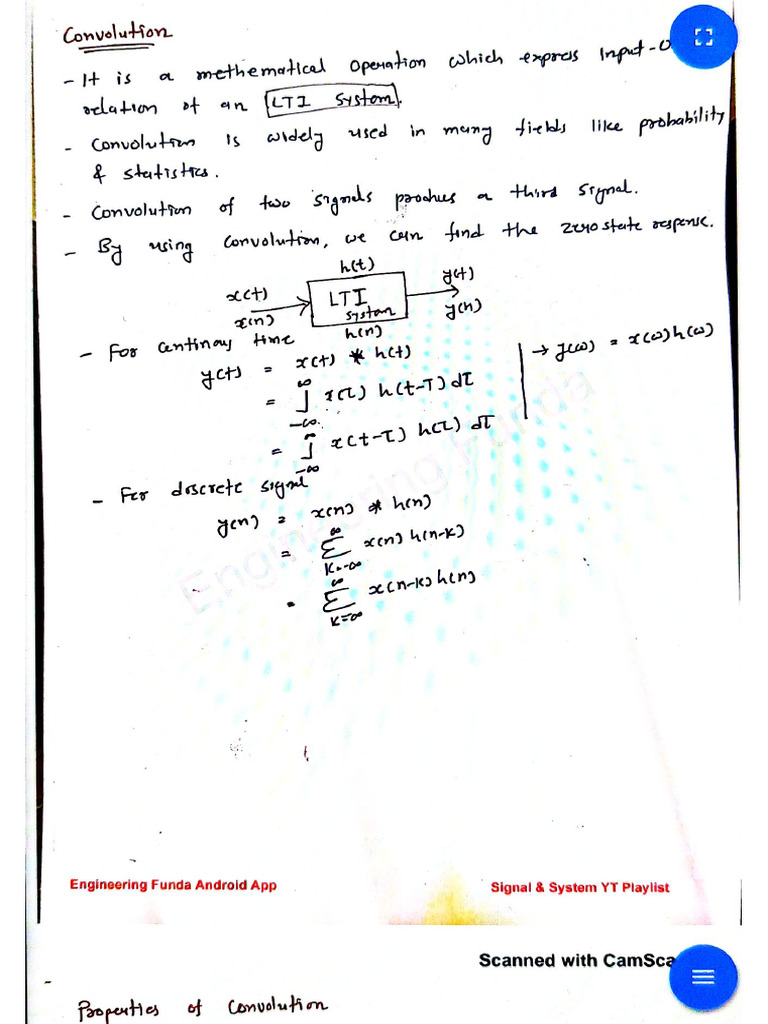 Convolution
- It is a methematical operation which express Input-O
relation of an LTI system.
- Convolution is widely used in many fields like probability
& statistics.
- Convolution of two signals produces a third signal.
- By using convolution, we can find the zero state response.
h(t)
x(t) y(t)
LTI
x(n) system y(n)
h(n)
- For continous time
y(t) = x(t) * h(t) → y(ω) = x(ω) h(ω)
= ∫_{-∞}^{∞} x(τ) h(t-τ) dτ
= ∫_{-∞}^{∞} x(t-τ) h(τ) dτ
- For discrete signal
y(n) = x(n) * h(n)
= Σ_{k=-∞}^{∞} x(n) h(n-k)
= Σ_{k=∞}^{∞} x(n-k) h(n)
Engineering Funda
Engineering Funda Android App Signal & System YT Playlist
Scanned with CamSca
-
Properties of Convolution